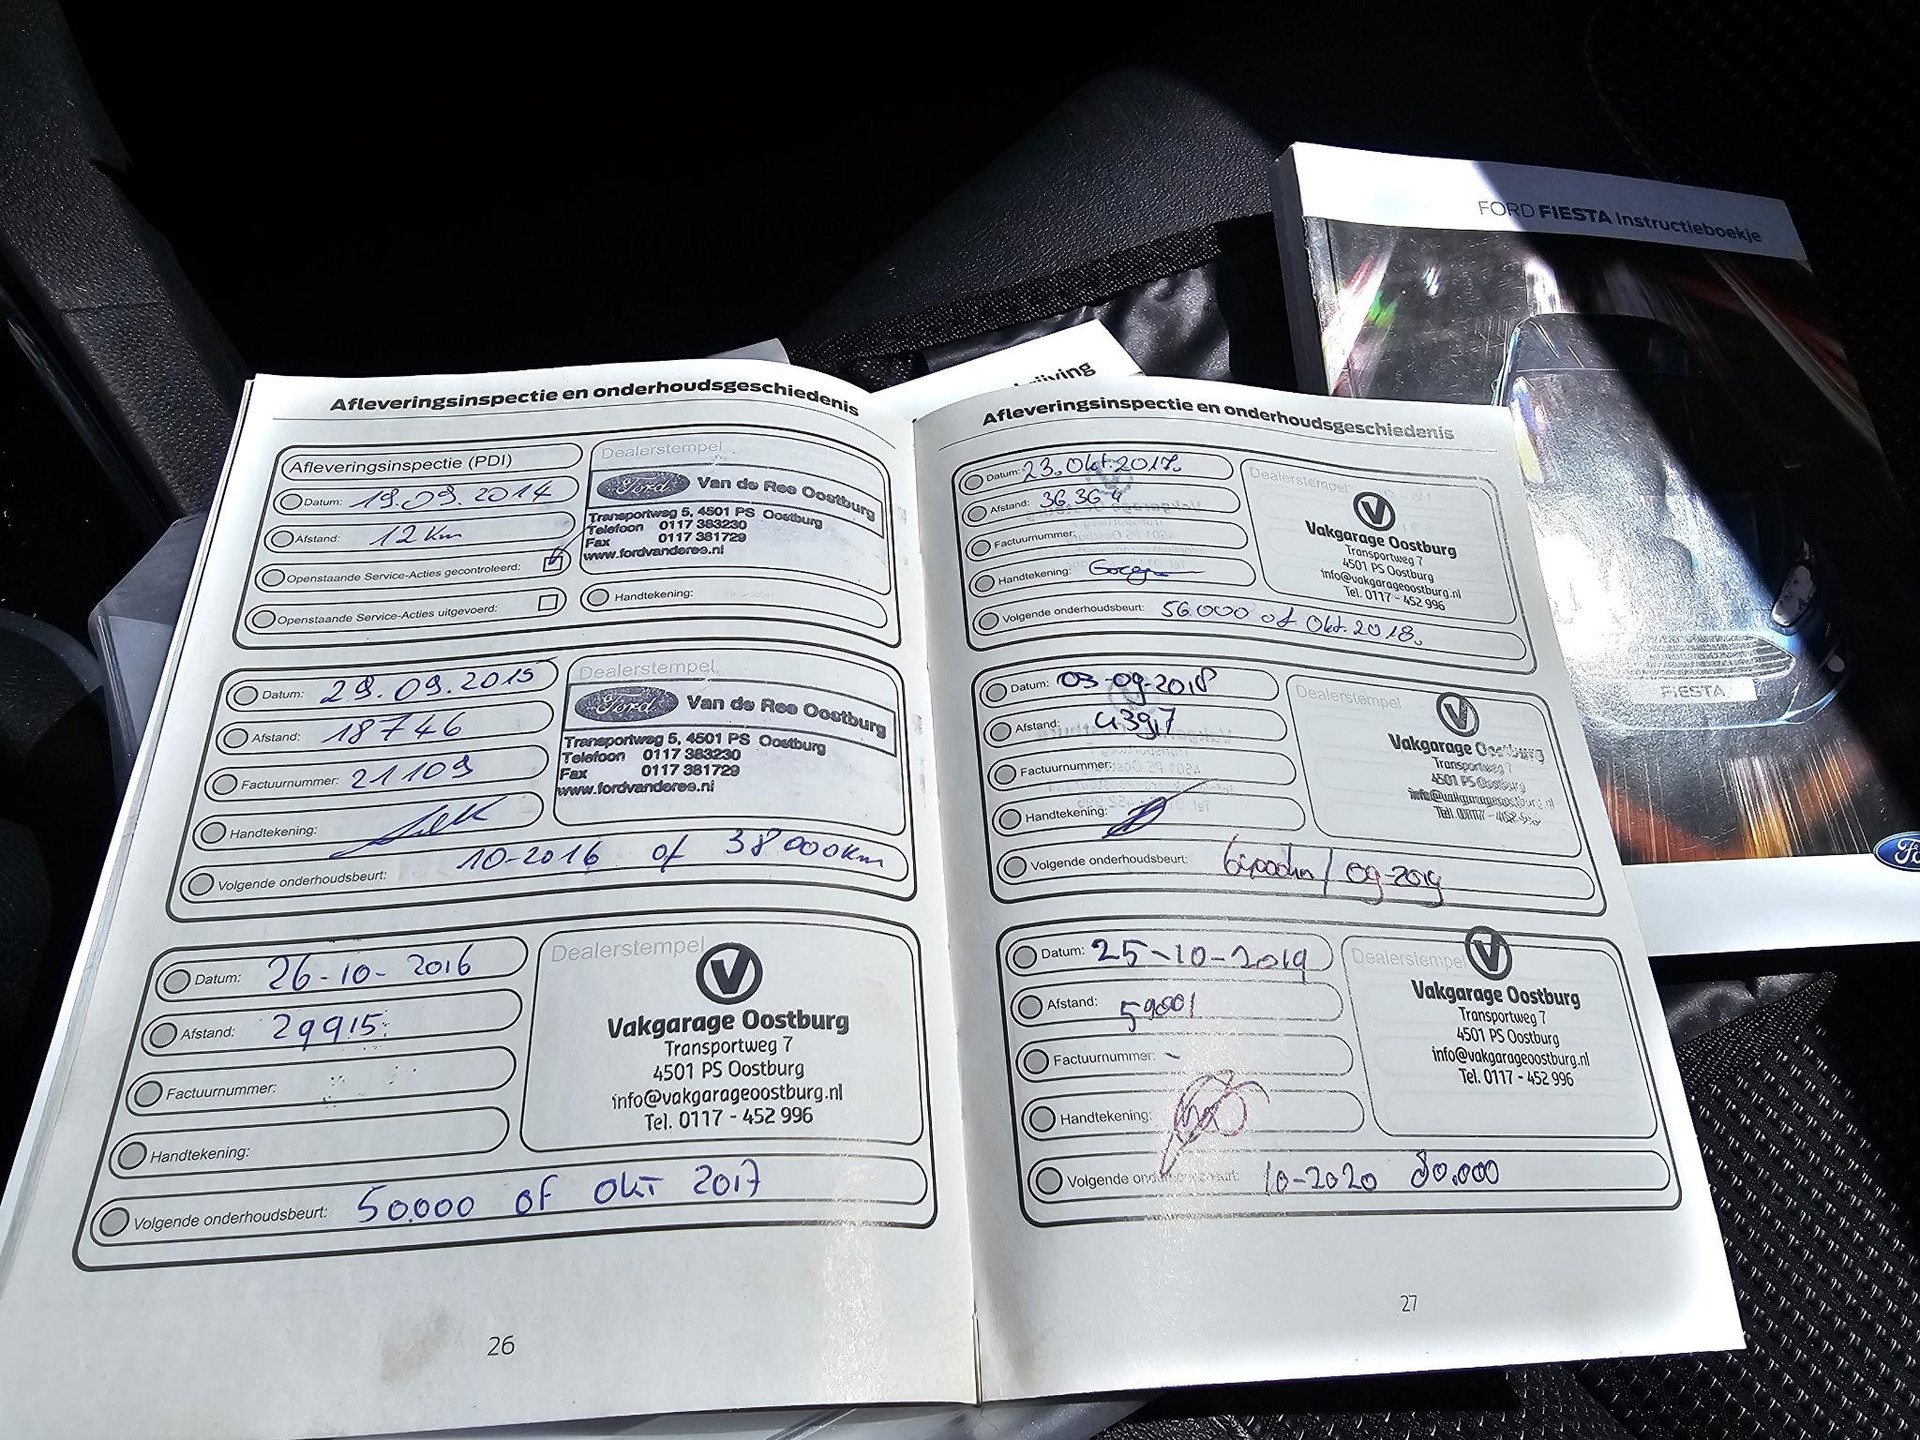 Afleveringsinspectie en onderhoudsgeschiedenis
Afleveringsinspectie (PDI)
Datum: 19.09.2014
Afstand: 12 km
Openstaande Service-Acties gecontroleerd:
Openstaande Service-Acties uitgevoerd:
Dealerstempel
Ford Van de Ree Oostburg
Transportweg 5, 4501 PS Oostburg
Telefoon 0117 383230
Fax 0117 381729
www.fordvanderee.nl
Handtekening:
Datum: 29.09.2015
Afstand: 18746
Factuurnummer: 21109
Handtekening:
Volgende onderhoudsbeurt: 10-2016 of 38000km
Dealerstempel
Ford Van de Ree Oostburg
Transportweg 5, 4501 PS Oostburg
Telefoon 0117 383230
Fax 0117 381729
www.fordvanderee.nl
Datum: 26-10-2016
Afstand: 29915
Factuurnummer:
Handtekening:
Volgende onderhoudsbeurt: 50.000 of OKT 2017
Dealerstempel
Vakgarage Oostburg
Transportweg 7
4501 PS Oostburg
info@vakgarageoostburg.nl
Tel. 0117 - 452 996
26
Afleveringsinspectie en onderhoudsgeschiedenis
Datum: 23.Okt.2017.
Afstand: 36364
Factuurnummer:
Handtekening:
Volgende onderhoudsbeurt: 56.000 of Okt.2018.
Dealerstempel
Vakgarage Oostburg
Transportweg 7
4501 PS Oostburg
info@vakgarageoostburg.nl
Tel. 0117 - 452 996
Datum: 03-09-2018
Afstand:
Factuurnummer:
Handtekening:
Volgende onderhoudsbeurt: / 09-2019
Dealerstempel
Vakgarage Oostburg
Transportweg 7
4501 PS Oostburg
info@vakgarageoostburg.nl
Tel. 0117 - 452 996
Datum: 25-10-2019
Afstand: 59001
Factuurnummer: -
Handtekening:
Volgende 10-2020 80.000
Dealerstempel
Vakgarage Oostburg
Transportweg 7
4501 PS Oostburg
info@vakgarageoostburg.nl
Tel. 0117 - 452 996
27
FORD FIESTA Instructieboekje
FIESTA